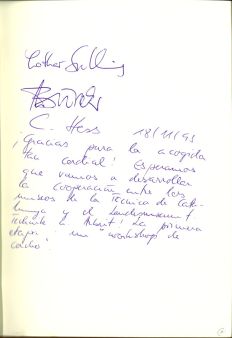 Lothar Suhling
C. Hess 18/11/93
¡Gracias para la acogida
tan cordial! Esperamos
que vamos a desarrollar
la cooperación entre los
museos de la Técnica de Cata-
lunya y el Landesmuseum f.
Technik & Arbeit! La primera
etapa: un "workshop" de